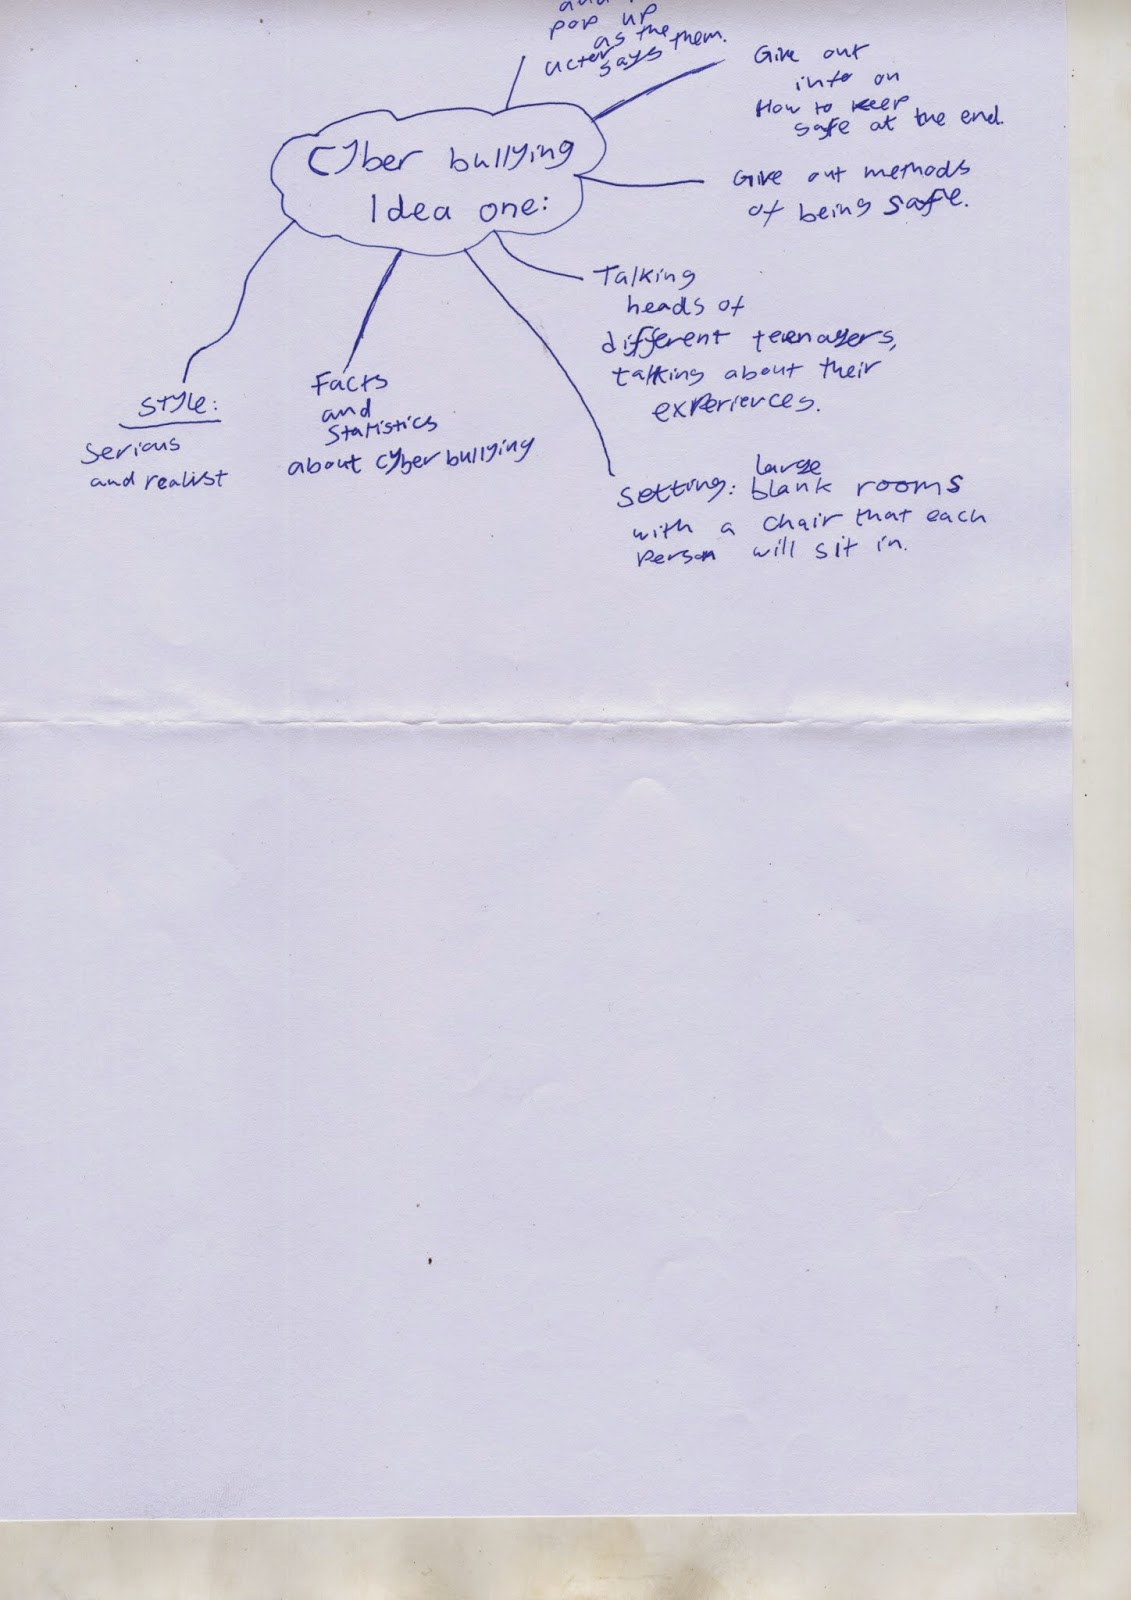 pop up
as the
acter
says them.
Give out
info on
How to keep
safe at the end.
Cyber bullying
Idea one:
Give out methods
of being safe.
Talking
heads of
different teenagers,
talking about their
experiences.
Style:
Serious
and realist
Facts
and
Statistics
about cyber bullying
large
Setting: blank rooms
with a chair that each
Person will sit in.